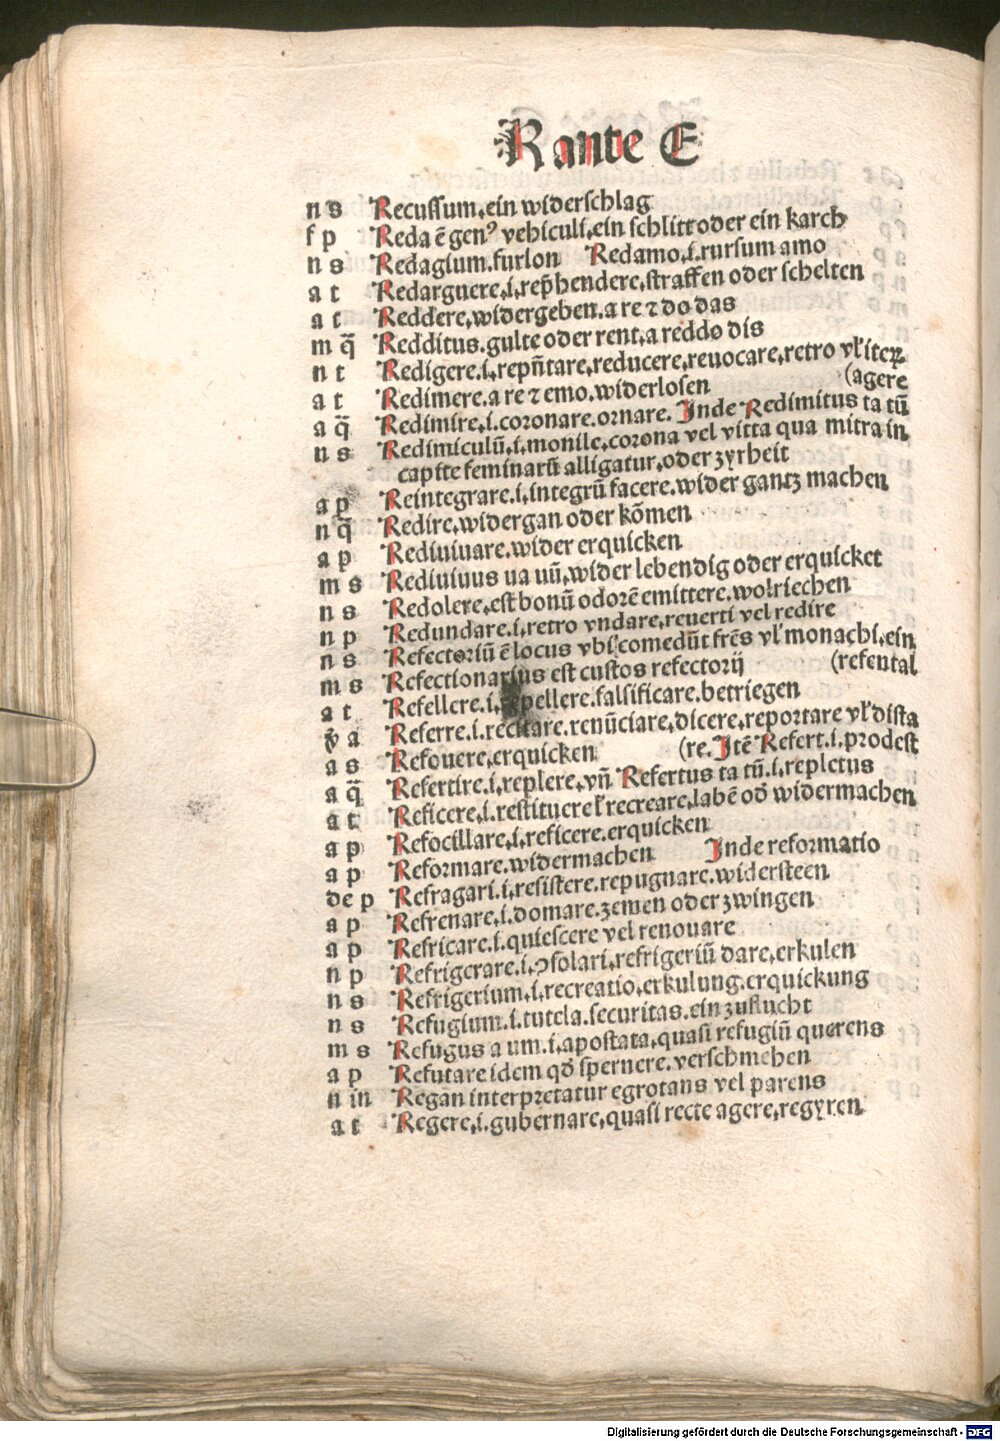 R ante E
n s Recussum.ein widerschlag
f p Reda ē genꝰ vehiculi.ein schlitt oder ein karch
n s Redagium.furlon Redamo.i.rursum amo
a t Redarguere.i.rep̄hendere.straffen oder schelten
a t Reddere.widergeben.a re ⁊ do das
m q̄ Redditus.gulte oder rent.a reddo dis
n t Redigere.i.repn̄tare.reducere.reuocare.retro vl̓ iteꝝ
a t Redimere.a re ⁊ emo.widerlosen (agere
a q̄ Redimire.i.coronare.ornare. Inde Redimitus ta tū
n s Redimiculū.i.monile.corona vel vitta qua mitra in
capite feminarū alligatur.oder zyrheit
a p Reintegrare.i.integrū facere.wider gantz machen
n q̄ Redire.widergan oder kōmen
a p Rediuiuare.wider erquicken
m s Rediuiuus ua uū.wider lebendig oder erquicket
n s Redolere.est bonū odorē emittere.wolriechen
n p Redundare.i.retro vndare.reuerti vel redire
n s Refectoriū ē locus vbi comedūt frēs vl̓ monachi.ein
m s Refectionarius est custos refectorij (refental
a t Refellere.i. pellere.falsificare.betriegen
v̄ a Referre.i.recitare.renūciare.dicere.reportare vl̓ dista
a s Refouere.erquicken (re. Itē Refert.i.prodest
a q̄ Refertire.i.replere.vn̄ Refertus ta tū.i.repletus
a t Reficere.i.restituere l̓ recreare.labē od̓ widermachen
a p Refocillare.i.reficere.erquicken
a p Reformare.widermachen Inde reformatio
de p Refragari.i.resistere.repugnare.widersteen
a p Refrenare.i.domare.zemen oder zwingen
a p Refricare.i.quiescere vel renouare
n p Refrigerare.i.ꝯsolari.refrigeriū dare.erkulen
n s Refrigerium.i.recreatio.erkulung.erquickung
n s Refugium.i.tutela.securitas.ein zuflucht
m s Refugus a um.i.apostata.quasi refugiū querens
a p Refutare idem qd̓ spernere.verschmehen
n in Regan interpretatur egrotans vel parens
a t Regere.i.gubernare.quasi recte agere.regyren
Digitalisierung gefördert durch die Deutsche Forschungsgemeinschaft - DFG